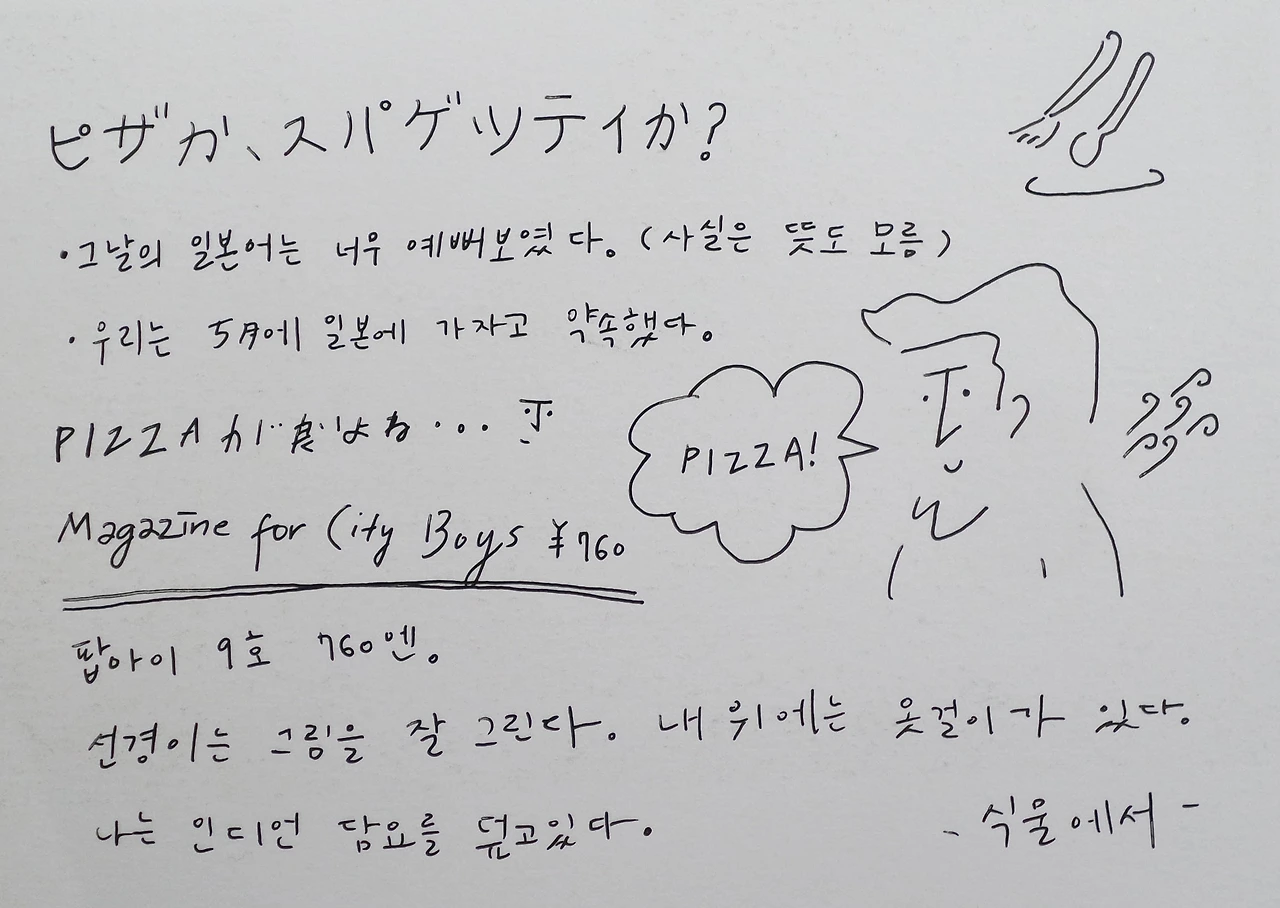 ピザか、スパゲッティか?
・그날의 일본어는 너무 예뻐보였다。(사실은 뜻도 모름)
・우리는 5月에 일본에 가자고 약속했다。
PIZZAが食いよね・・・
PIZZA!
Magazine for City Boys ¥760
팝아이 9호 760엔。
선경이는 그림을 잘 그린다. 내 위에는 옷걸이가 있다.
나는 인디언 담요를 덮고있다.
- 식물에서 -